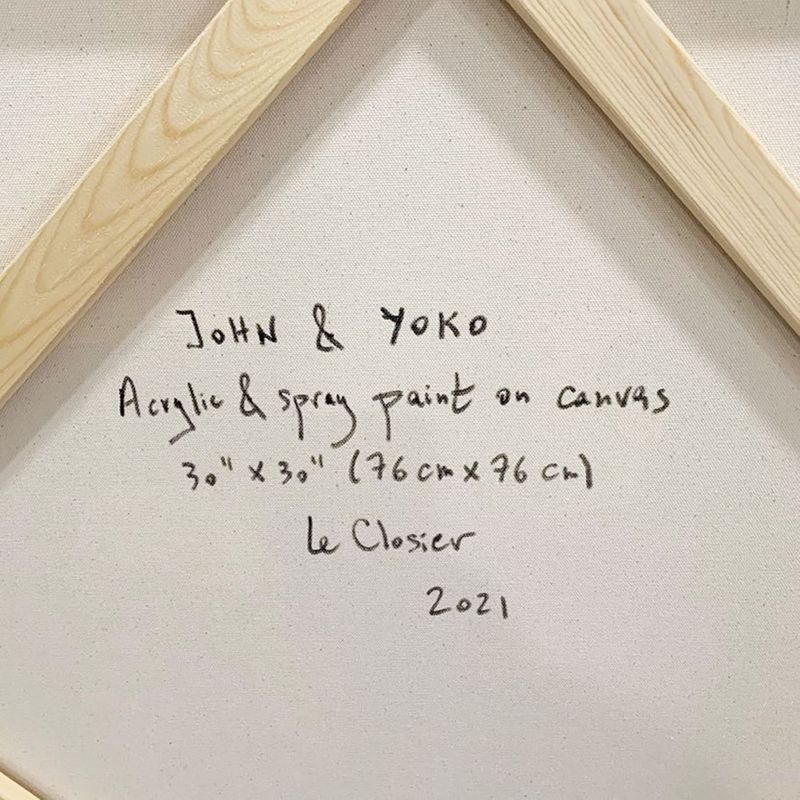 JOHN & YOKO
Acrylic & spray paint on canvas
30" x 30" (76 cm x 76 cm)
Le Closier
2021